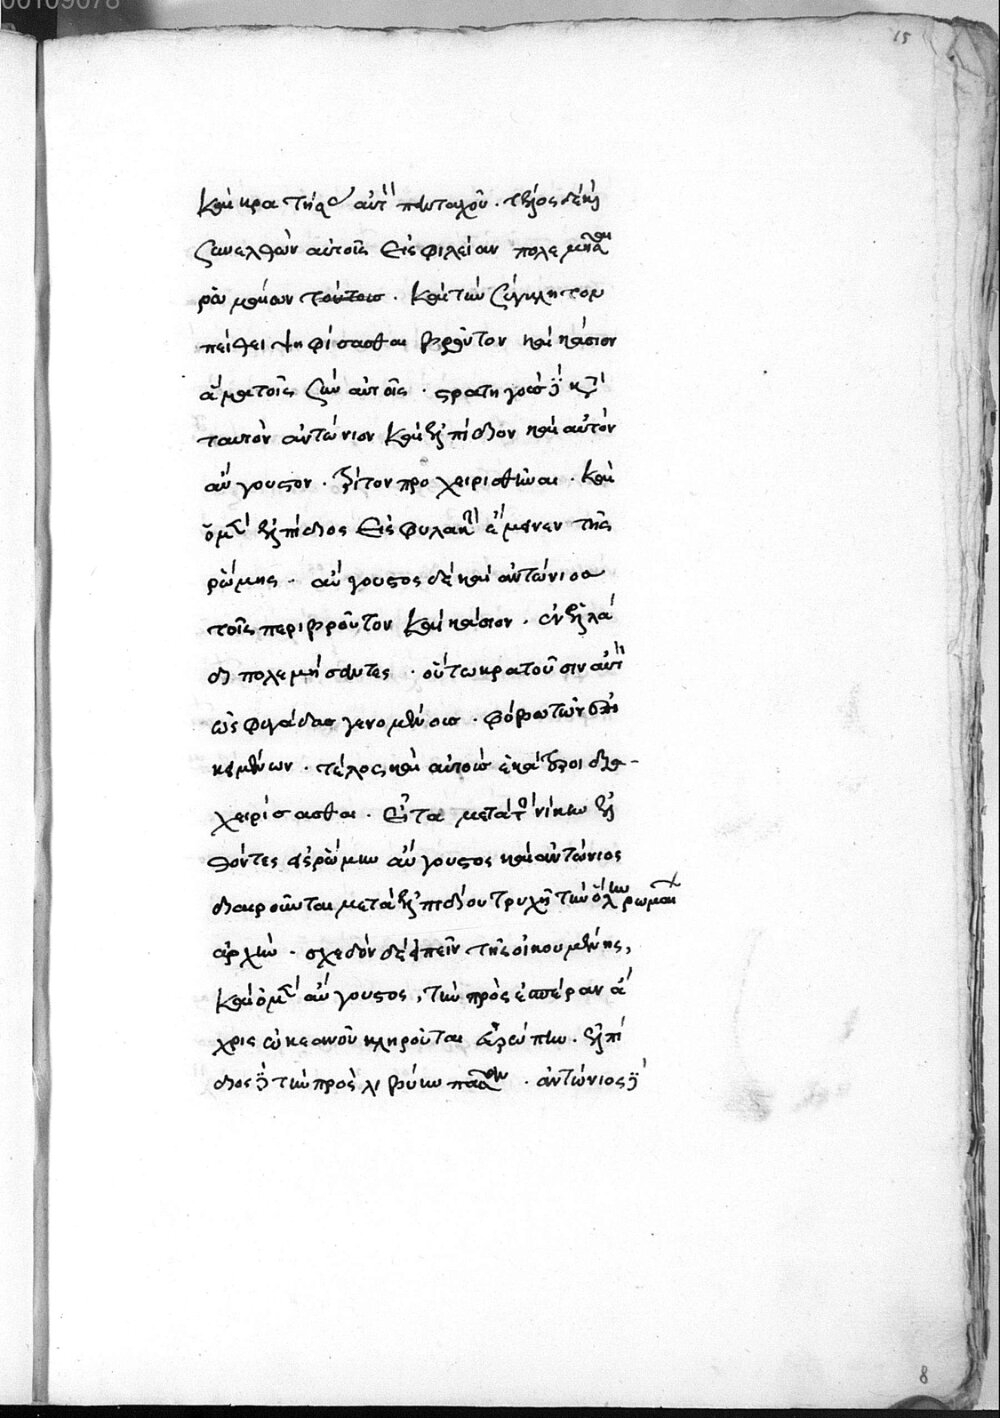 15
καὶ κρατήσας αὐτῶν πανταχοῦ. τέλος δὲ καὶ
ξυνελθὼν αὐτοῖς εἰς φιλείαν πολεμῆσαι
μένων τούτοις. καὶ τὴν ξύγκλητον
πείθει ψηφίσασθαι βροῦτον καὶ κάσιον
ἅμα τοῖς ξὺν αὐτοῖς. στρατηγοὺς δὲ κατὰ
ταυτὸν ἀντώνιον καὶ λέπιδον καὶ αὐτὸν
αὔγουστον. τρίτον προχειρισθῆναι. καὶ
ὁ μὲν λέπιδος εἰς φυλακὴν ἔμεινεν τῆς
ῥώμης. αὔγουστος δὲ καὶ ἀντώνιος
τοῖς περὶ βροῦτον καὶ κάσιον. ἐν ἑλλά
δι πολεμήσαντες. οὕτω κρατοῦσιν αὐτῶν
ὡς φυγάδας γενομένους. φόβω τῶν ἐπι
κειμένων. τέλος καὶ αὐτοὺς ἑκάτεροι δια-
χειρίσασθαι. εἶτα μετὰ τὴν νίκην ἐλ
θόντες εἰς ῥώμην αὔγουστος καὶ ἀντώνιος
διαιροῦνται μετὰ λεπίδου τριχῆ τὴν ὅλην ῥωμαϊκὴν
ἀρχὴν. σχεδὸν δὲ εἰπεῖν τῆς οἰκουμένης,
καὶ ὁ μὲν αὔγουστος, τὴν πρὸς ἑσπέραν ἄ
χρις ὠκεανοῦ κληροῦται εὐρώπην. λέπι
δος δὲ τὴν πρὸς λιβύην πᾶσαν. ἀντώνιος δὲ
8